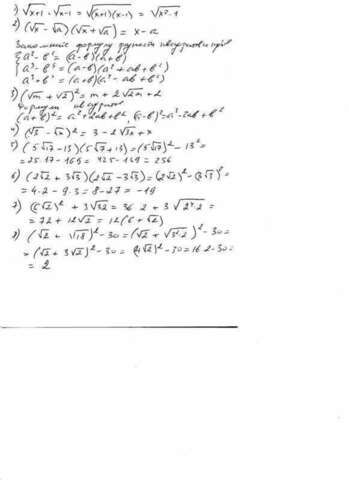 1) √x+1 · √x-1 = √(x+1)(x-1) = √x²-1
2) (√x - √a)(√x + √a) = x - a
a² - b² = (a-b)(a+b)
a³ - b³ = (a-b)(a² + ab + b²)
a³ + b³ = (a+b)(a² - ab + b²)
3) (√m + √2)² = m + 2√2m + 2
(a+b)² = a² + 2ab + b², (a-b)² = a² - 2ab + b²
4) (√3 - √x)² = 3 - 2√3x + x
5) (5√17 - 13)(5√17 + 13) = (5√17)² - 13² =
= 25·17 - 169 = 425 - 169 = 256
6) (2√2 + 3√3)(2√2 - 3√3) = (2√2)² - (3√3)² =
= 4·2 - 9·3 = 8 - 27 = -19
7) (6√2)² + 3√32 = 36·2 + 3√2⁴·2 =
= 72 + 12√2 = 12(6 + √2)
8) (√2 + √18)² - 30 = (√2 + √3²·2)² - 30 =
= (√2 + 3√2)² - 30 = (4√2)² - 30 = 16·2 - 30 =
= 2